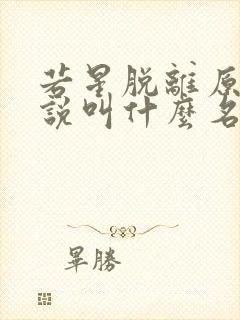 若星脫離原
說叫什麼名
畢勝